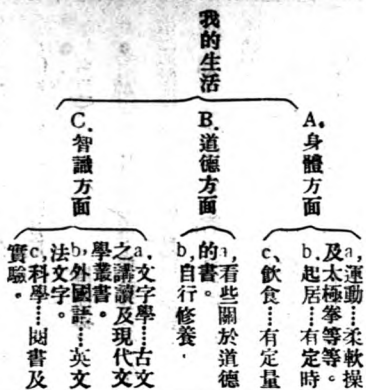 我的生活
A.身體方面
a,運動……柔軟操
及太極拳等等。
b.起居……有定時
c、飲食……有定量
B.道德方面
a,看些關於道德
的書。
b,自行修養.
C.智識方面
a.文字學……古文
之講讀及現代文
學叢書。
b,外國語……英文
法文字。
c,科學……閱書及
實驗。